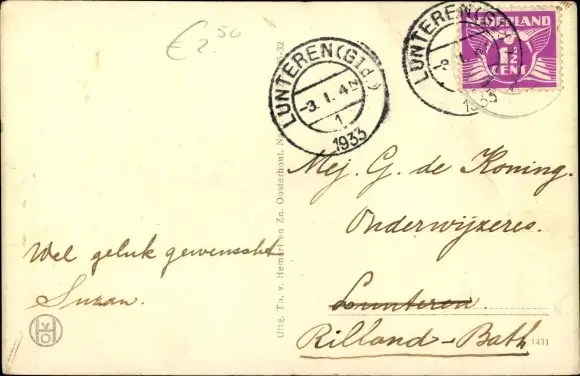 € 2.50
LUNTEREN (Gld.)
-3.1.4N
1
1933
LUNTEREN (Gld.)
1933
NEDERLAND
1½
CENT
Mej. G. de Koning.
Onderwijzeres.
Lunteren.
Rilland-Bath
Wel geluk gewenscht
Suzan.
Uitg. Th. v. Hemert en Zn. Oosterhout.
1471